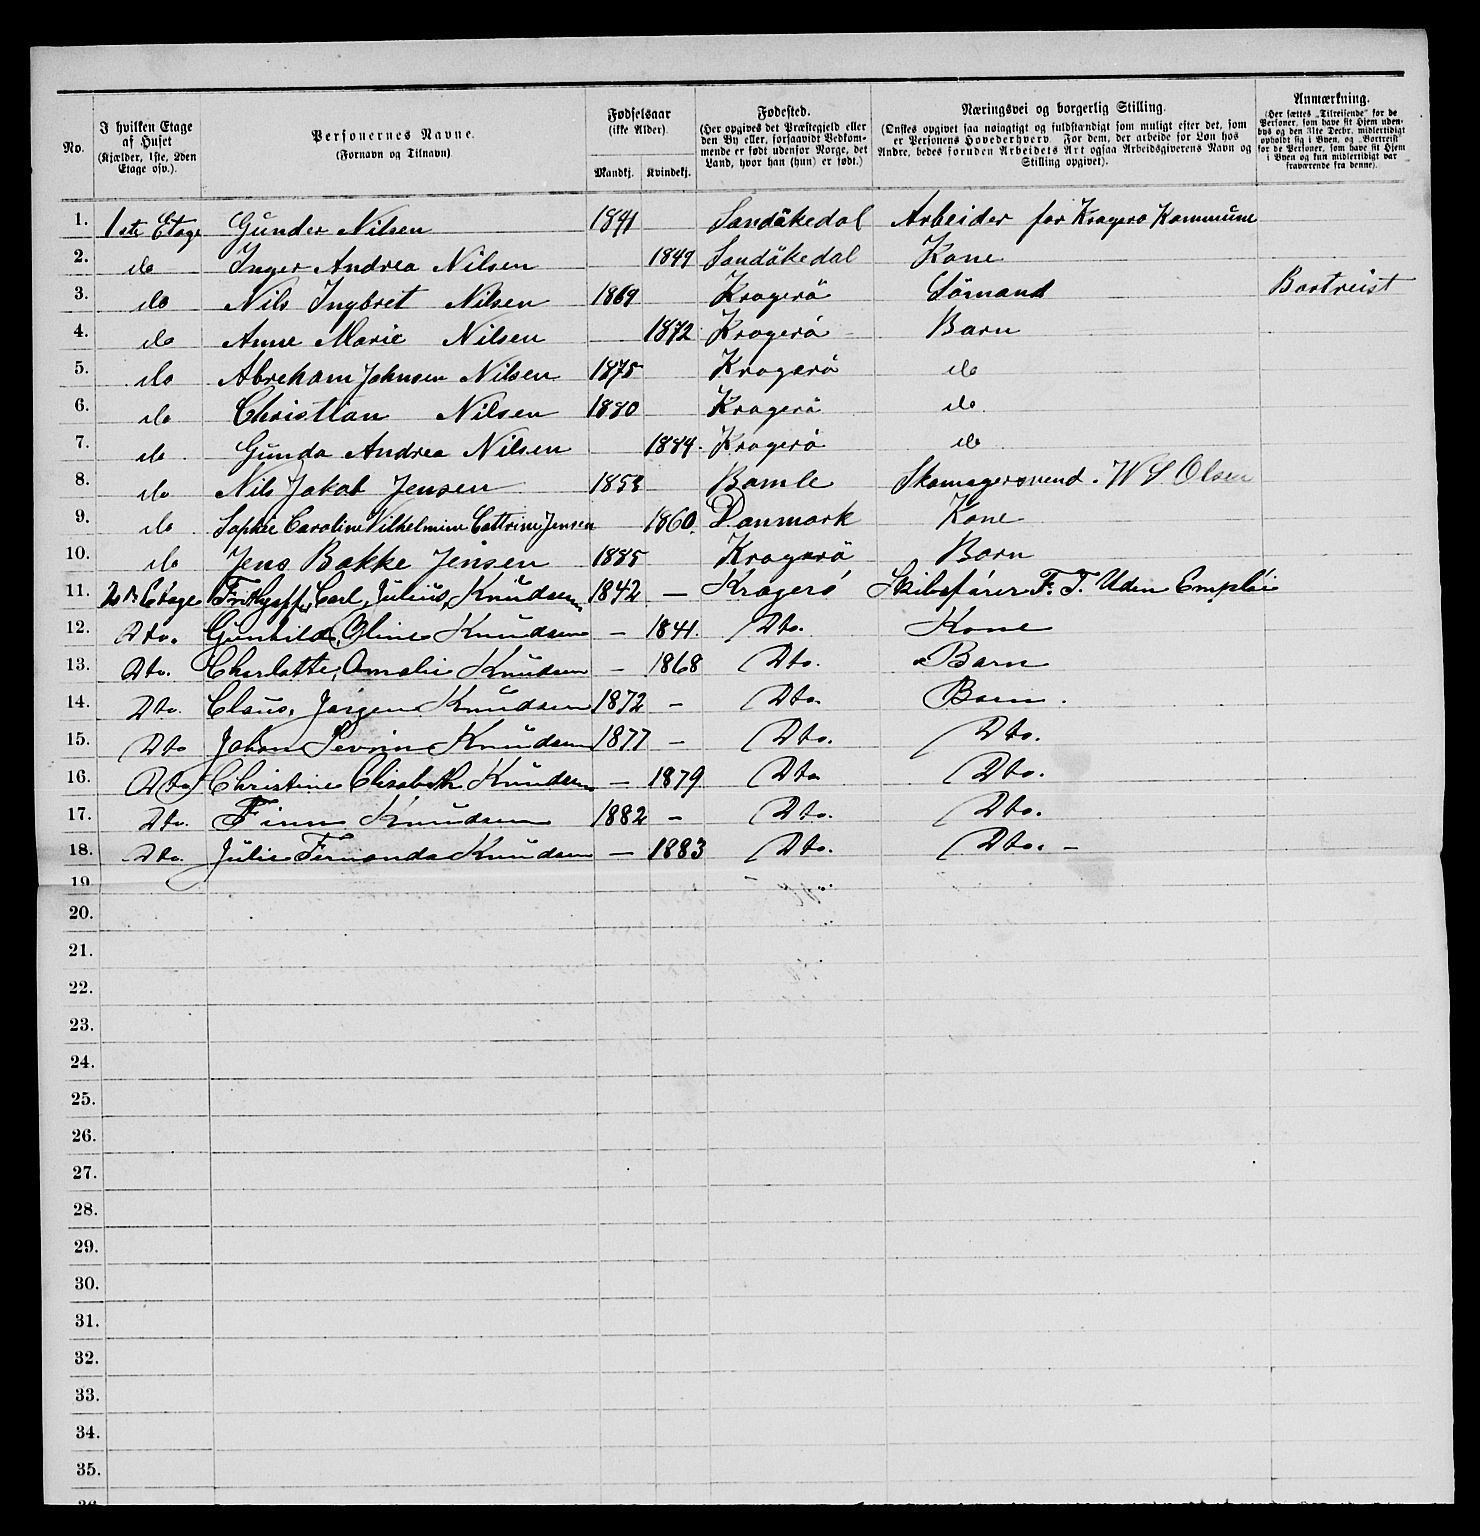 No. | I hvilken Etage af Huset (Kjælder, 1ste, 2den Etage osv.). | Personernes Navne. (Fornavn og Tilnavn) | Fødselsaar (ikke Alder). Mandkj. | Kvindekj. | Fødested. (Her opgives det Præstegjeld eller den By eller, forsaavidt Vedkommende er født udenfor Norge, det Land, hvor han (hun) er født.) | Næringsvei og borgerlig Stilling. (Ønskes opgivet saa nøiagtigt og fuldstændigt som muligt efter det, som er Personens Hovederhverv. For dem, der arbeide for Løn hos Andre, bedes foruden Arbeidets Art ogsaa Arbeidsgiverens Navn og Stilling opgivet). | Anmærkning. (Her sættes „Tilreisende" for de Personer, som have sit Hjem udenbys og den 31te Decbr. midlertidigt opholdt sig i Byen, og „Bortreist" for de Personer, som have sit Hjem i Byen og kun midlertidigt var fraværende fra denne).
1. 1ste Etage Gunder Nilsen 1841 Sandökedal Arbeider for Kragerø Kommune
2. do Inger Andrea Nilsen 1849 Sandökedal Kone
3. do Nils Ingbret Nilsen 1869 Kragerö Sömand Bortreist
4. do Anne Marie Nilsen 1872 Kragerö Barn
5. do Abreham Johnsen Nilsen 1875 Kragerö do
6. do Christian Nilsen 1880 Kragerö do
7. do Gunda Andrea Nilsen 1884 Kragerö do
8. do Nils Jakob Jensen 1853 Bamle Skomagersvend. W S Olsen
9. do Sophie Caroline Vilhelmine Cattrine Jensen 1860. Danmark Kone
10. do Jens Bakke Jensen 1885 Kragerö Barn
11. 2den Etage Frithjoff, Carl, Julius, Knudsen 1842 — Kragerö Skibsfører F. T. Uden Emploi
12. Dto. Gunhild, Oline Knudsen — 1841. Dto. Kone
13. Dto. Charlotte, Amalie Knudsen — 1868 Dto. Barn
14. Dto. Claus, Jørgen Knudsen 1872 — Dto. Barn.
15. Dto Johan Sevrin Knudsen 1877 — Dto. Dto.
16. Dto Christine Elisabeth Knudsen — 1879 Dto Dto.
17. Dto. Finn Knudsen 1882 — Dto. Dto.
18. Dto. Julie Fernanda Knudsen — 1883 Dto. Dto. —
19.
20.
21.
22.
23.
24.
25.
26.
27.
28.
29.
30.
31.
32.
33.
34.
35.